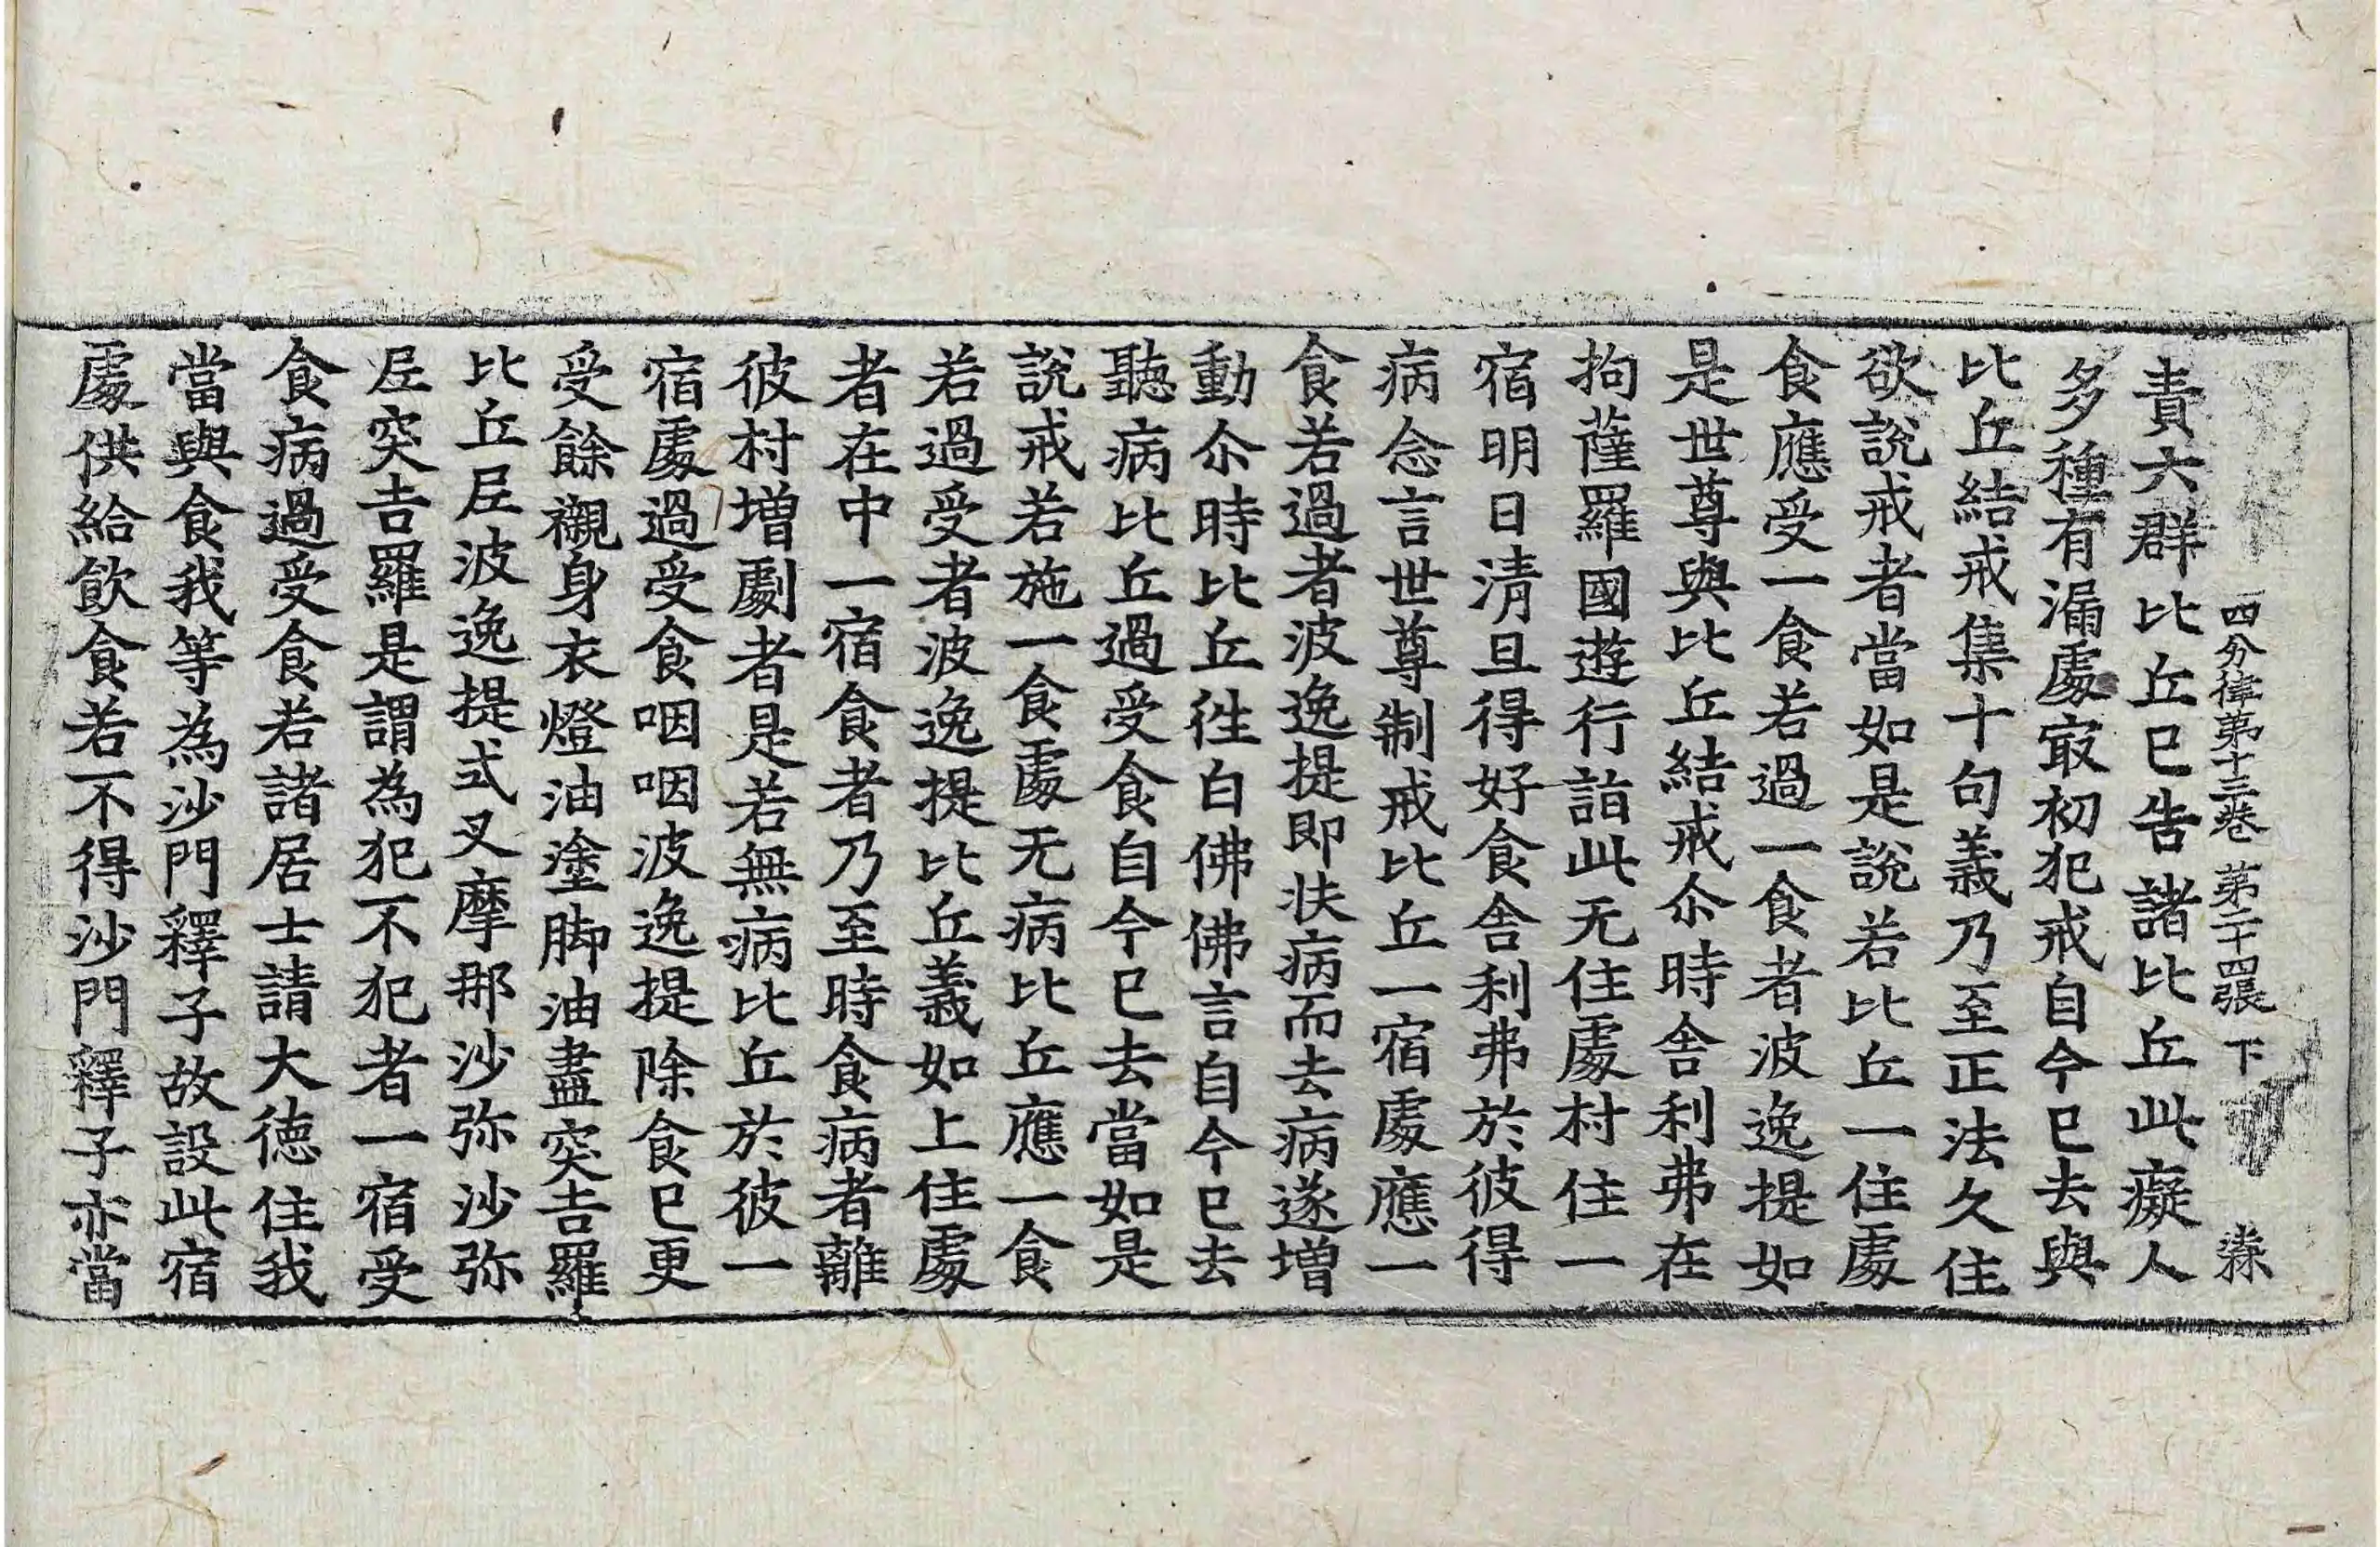 四分律第十三卷 第二十四張 下
責六群比丘已告諸比丘此癡人
多種有漏處㝡初犯戒自今已去與
比丘結戒集十句義乃至正法久住
欲說戒者當如是說若比丘一住處
食應受一食若過一食者波逸提如
是世尊與比丘結戒尒時舍利弗在
拘薩羅國遊行詣此无住處村住一
宿明日清旦得好食舍利弗於彼得
病念言世尊制戒比丘一宿處應一
食若過者波逸提即扶病而去病遂增
動尒時比丘徃白佛佛言自今已去
聽病比丘過受食自今已去當如是
說戒若施一食處无病比丘應一食
若過受者波逸提比丘義如上住處
者在中一宿食者乃至時食病者離
彼村增劇者是若無病比丘於彼一
宿處過受食咽咽波逸提除食已更
受餘襯身衣燈油塗脚油盡突吉羅
比丘尼波逸提式叉摩那沙弥沙弥
尼突吉羅是謂為犯不犯者一宿受
食病過受食若諸居士請大德住我
當與食我等為沙門釋子故設此宿
處供給飲食若不得沙門釋子亦當